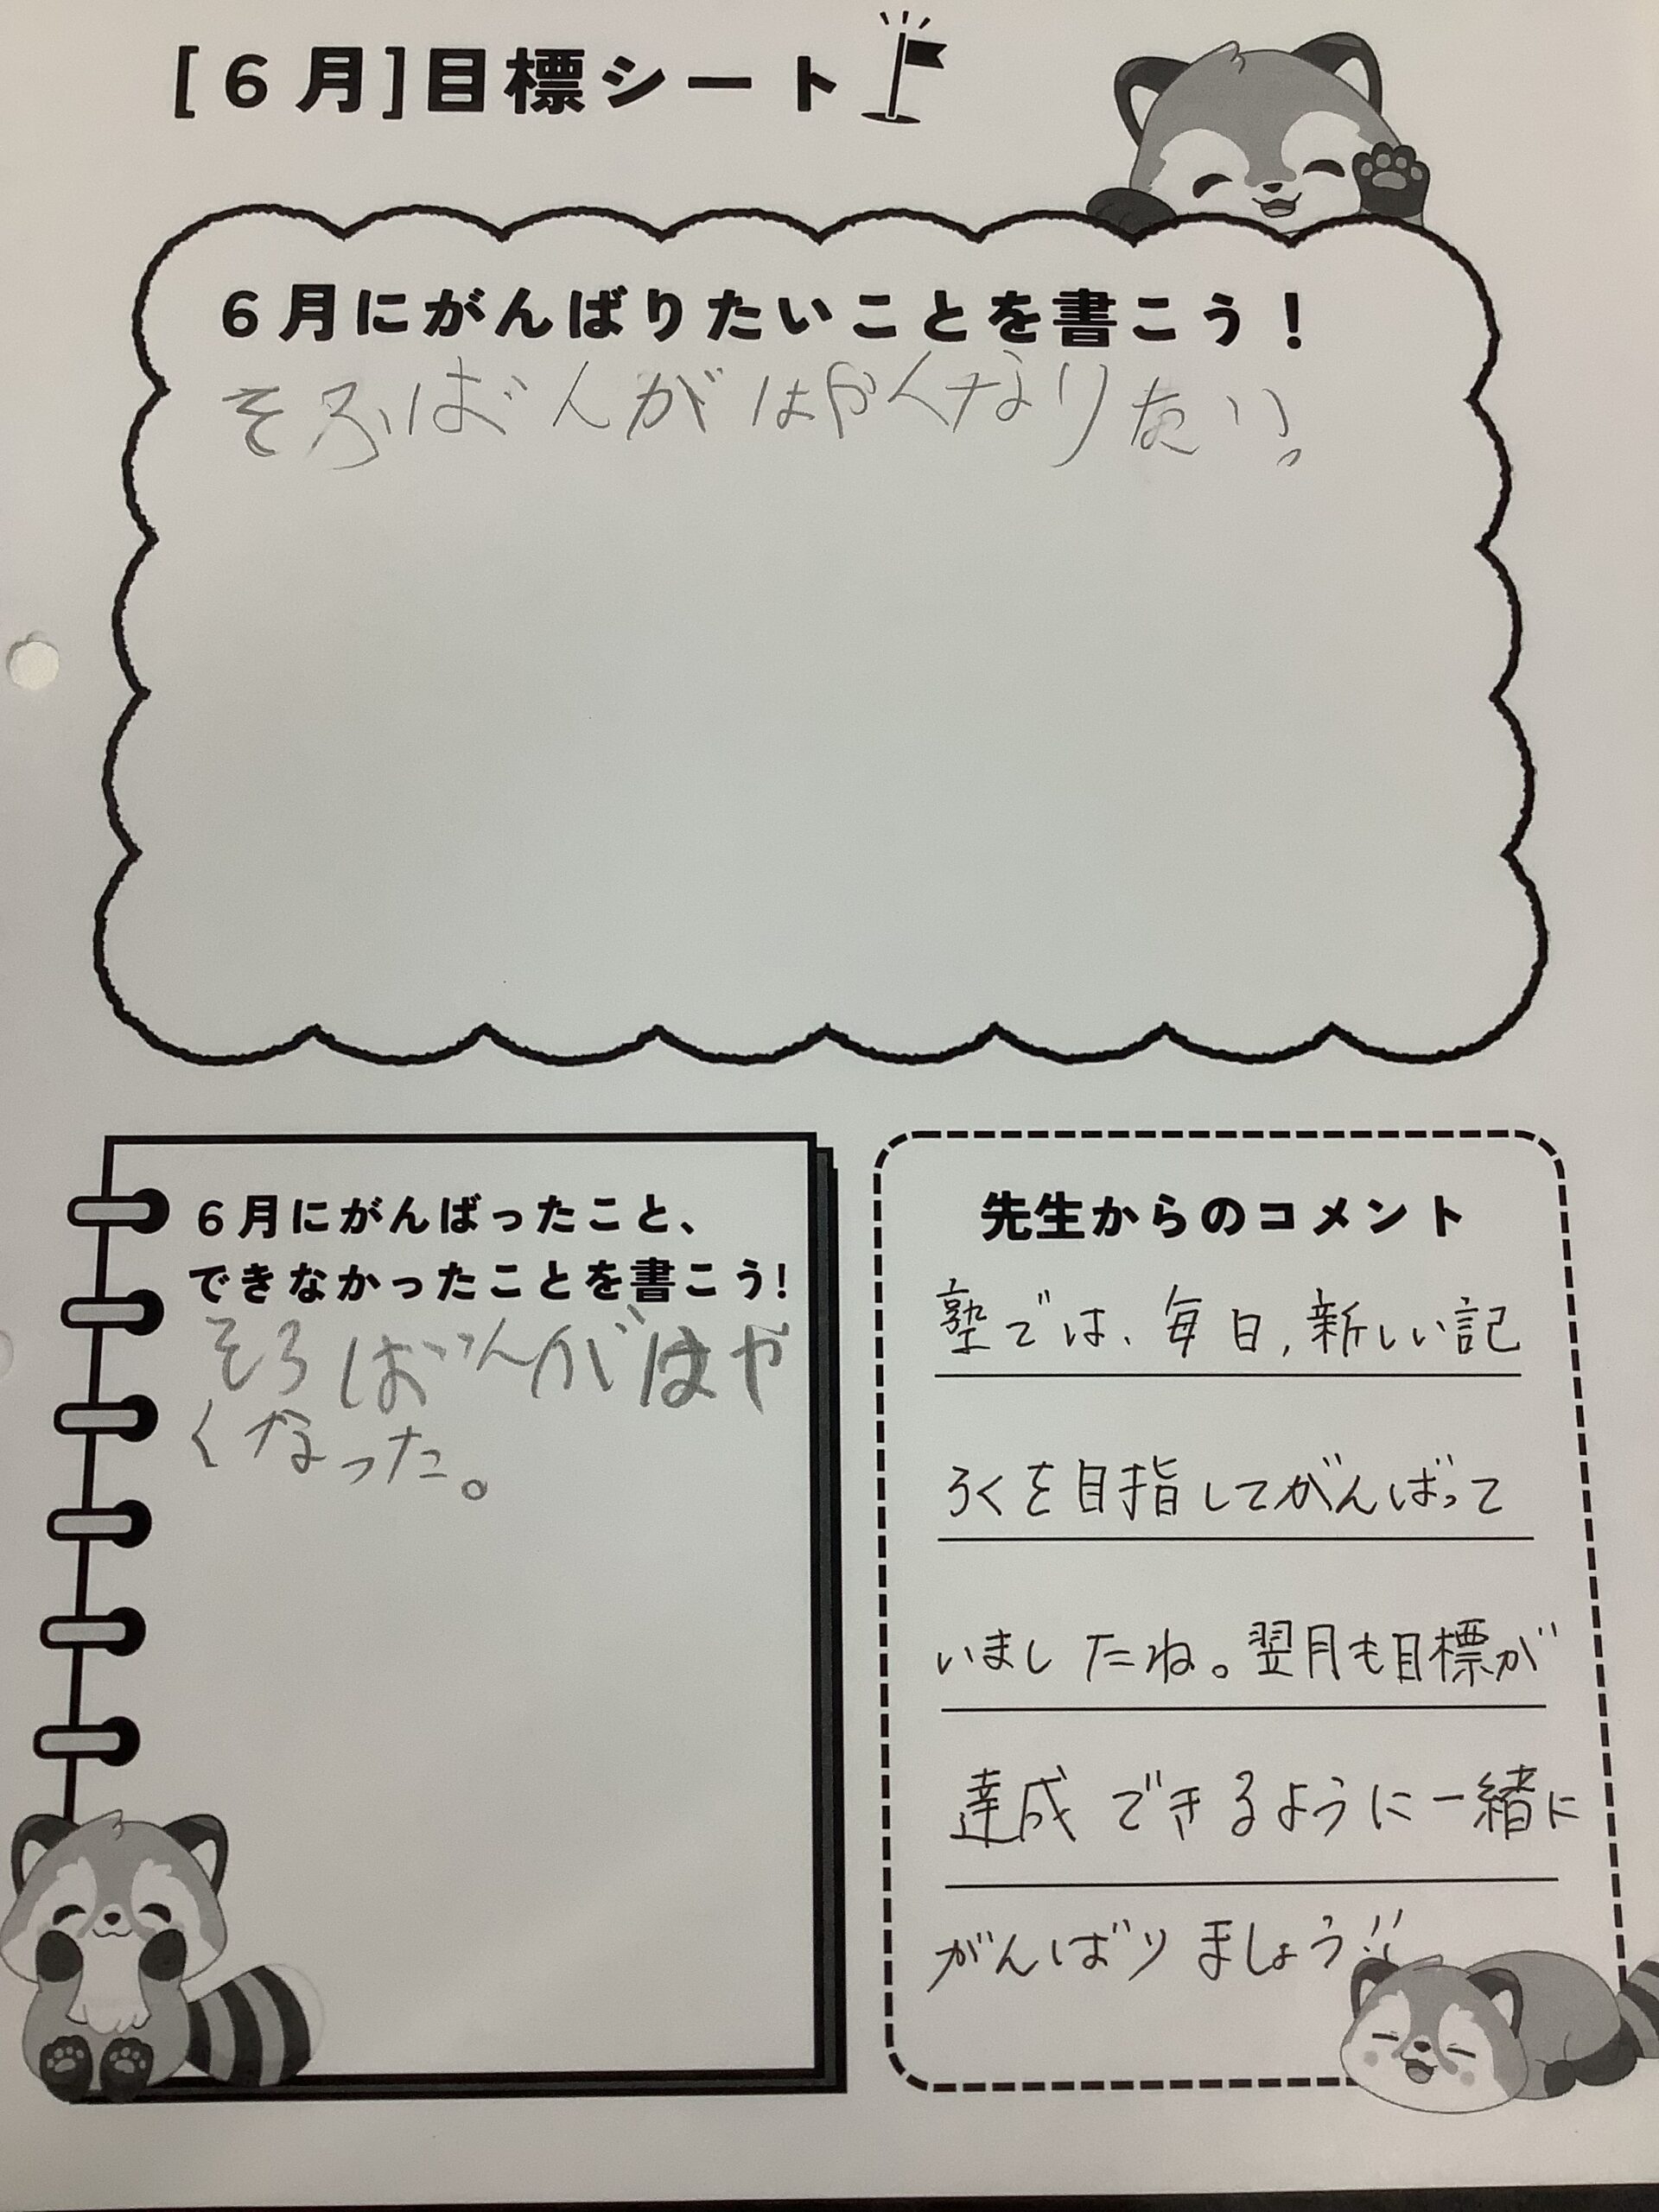 [６月]目標シート
６月にがんばりたいことを書こう！
そろばんがはやくなりたい。
６月にがんばったこと、
できなかったことを書こう!
そろばんがはや
くなった。
先生からのコメント
塾では、毎日,新しい記
ろくを目指してがんばって
いましたね。翌月も目標が
達成できるように一緒に
がんばりましょう!!